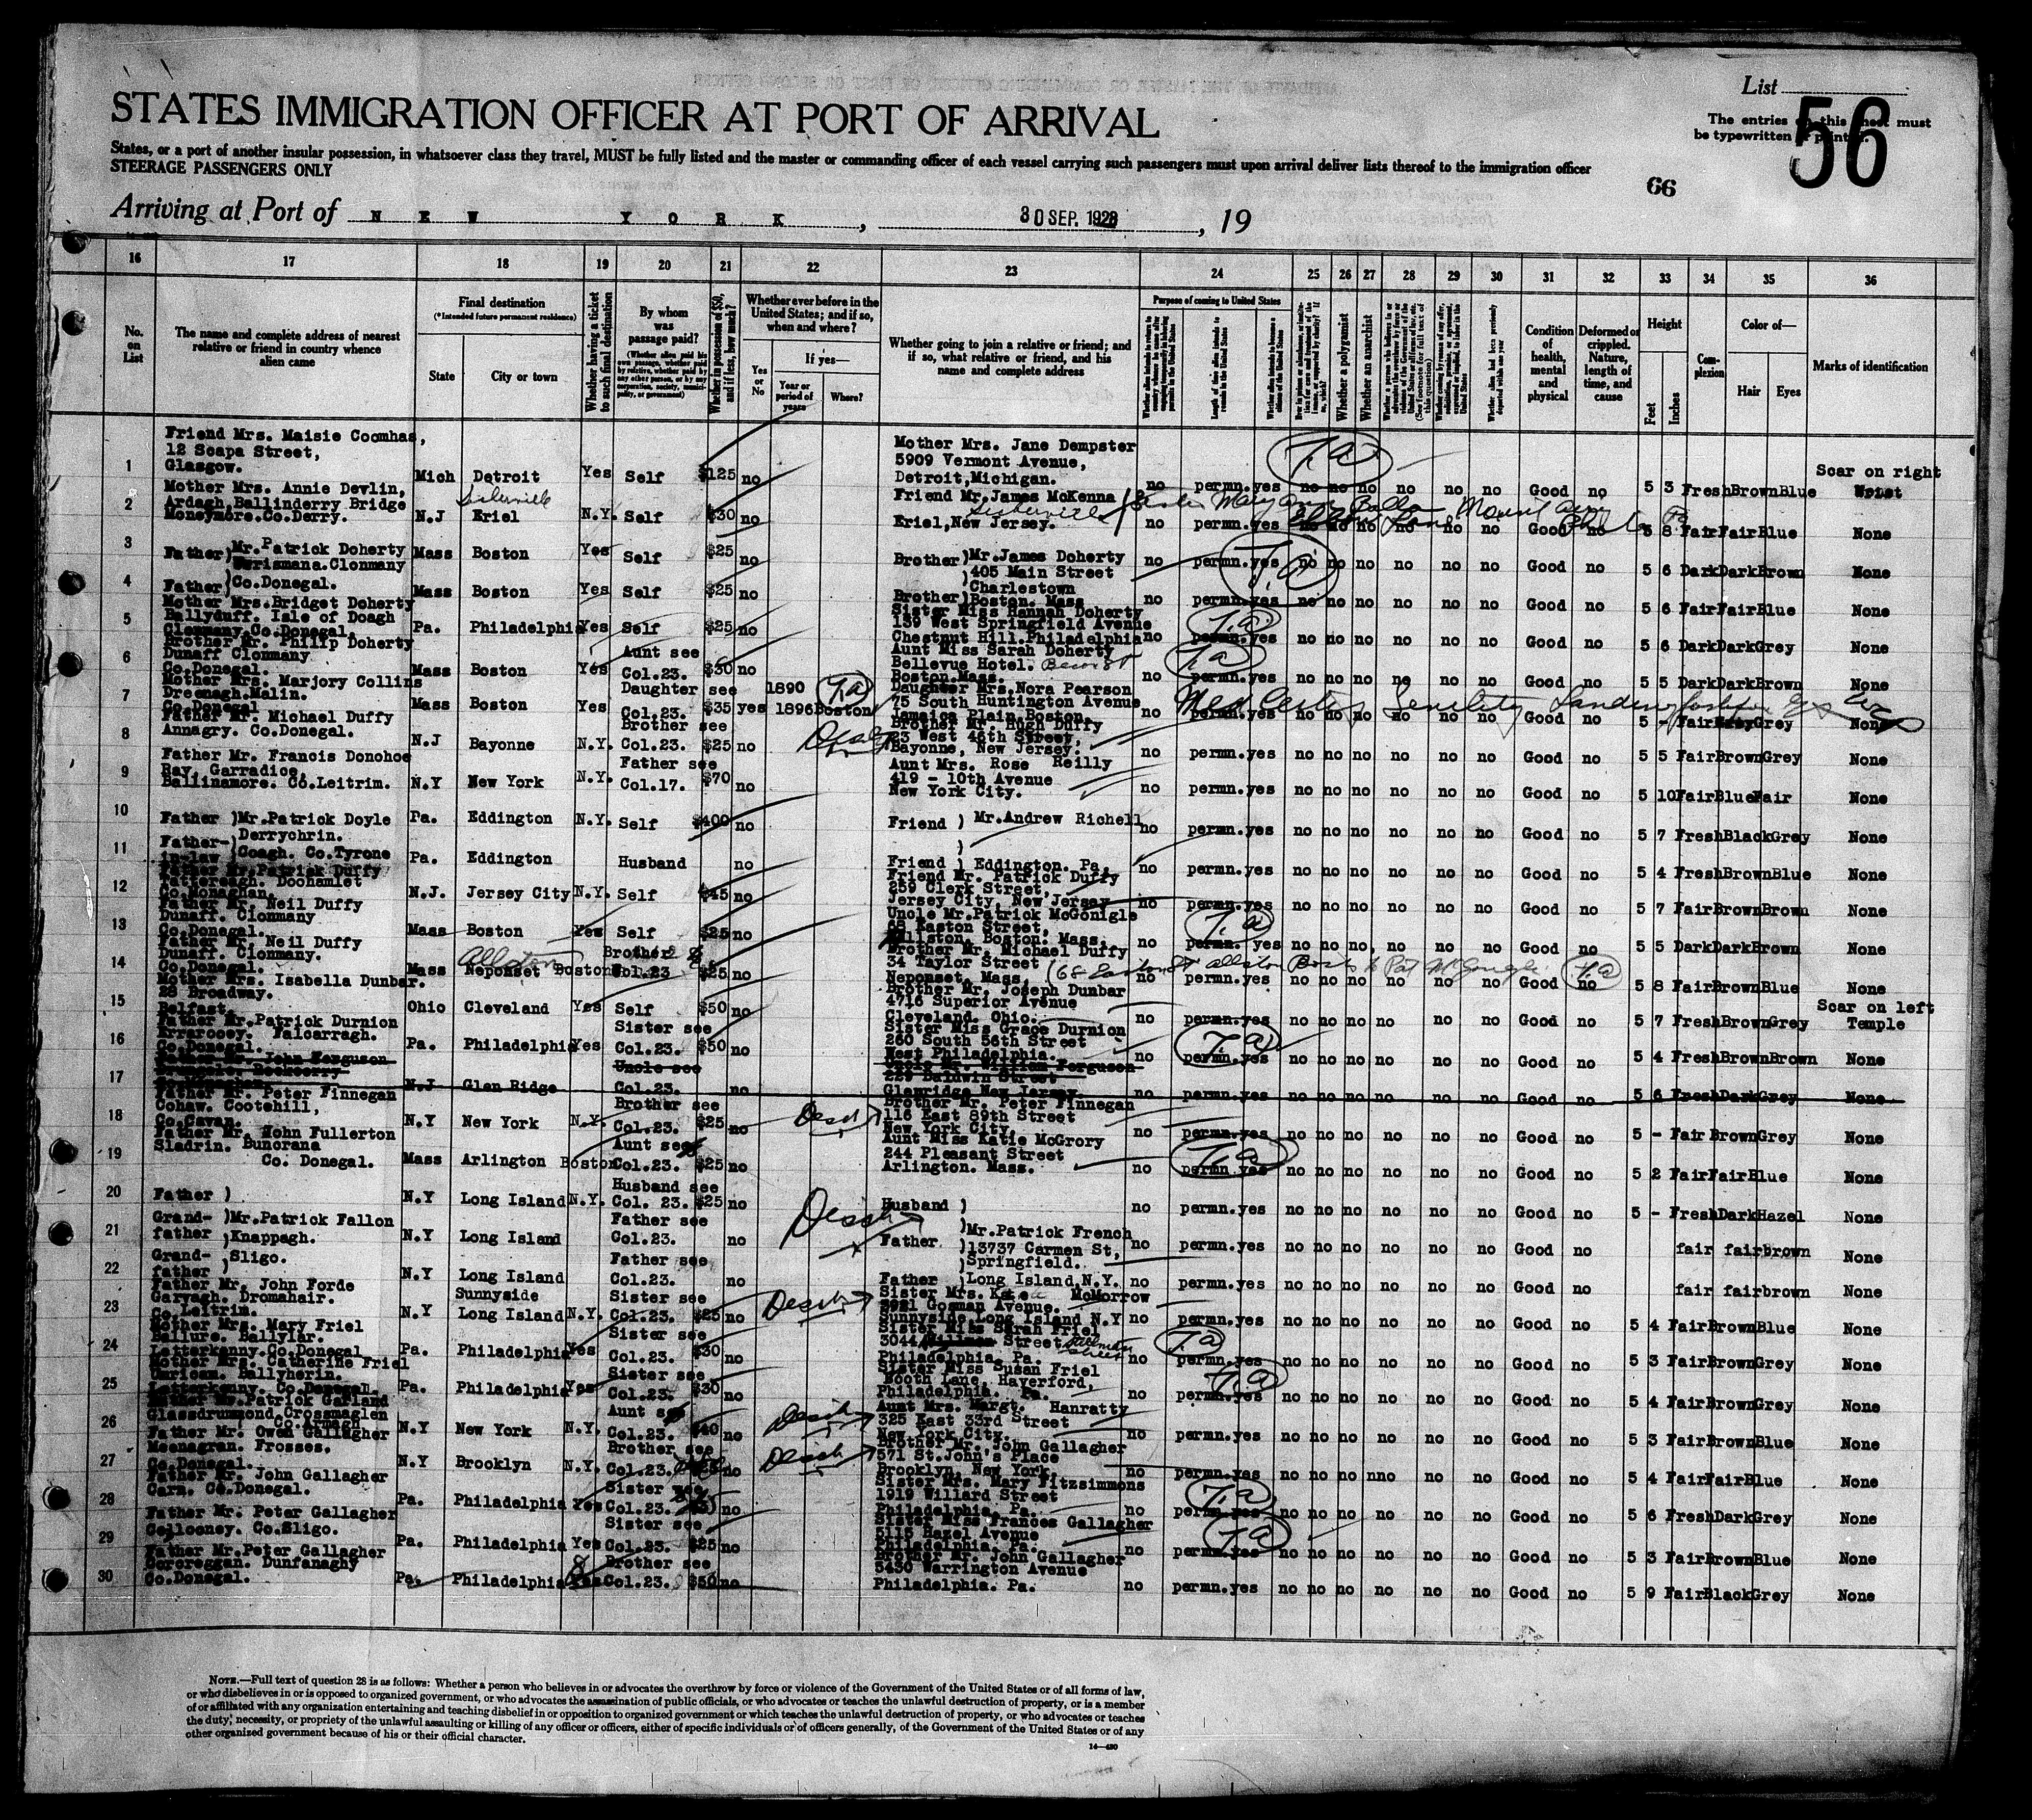 List
STATES IMMIGRATION OFFICER AT PORT OF ARRIVAL
The entries on this sheet must
be typewritten or printed.
56
States, or a port of another insular possession, in whatsoever class they travel, MUST be fully listed and the master or commanding officer of each vessel carrying such passengers must upon arrival deliver lists thereof to the immigration officer
STEERAGE PASSENGERS ONLY
66
Arriving at Port of NEW YORK, 30 SEP. 1928, 19
16 17 18 19 20 21 22 23 24 25 26 27 28 29 30 31 32 33 34 35 36
No. on List
The name and complete address of nearest relative or friend in country whence alien came
Final destination
(*Intended future permanent residence)
State
City or town
Whether having a ticket to such final destination
By whom was passage paid?
(Whether alien paid his own passage, whether paid by relative, whether paid by any other person, or by any corporation, society, municipality, or government)
Whether in possession of $50, and if less, how much?
Whether ever before in the United States; and if so, when and where?
Yes or No
If yes—
Year or period of years
Where?
Whether going to join a relative or friend; and if so, what relative or friend, and his name and complete address
Purpose of coming to United States
Length of time alien intends to remain in the United States
Whether alien intends to become a citizen of the United States
Whether a polygamist
Whether an anarchist
Condition of health, mental and physical
Deformed or crippled. Nature, length of time, and cause
Height
Feet
Inches
Complexion
Color of—
Hair
Eyes
Marks of identification
1 Friend Mrs. Maisie Coomhas, 12 Scapa Street, Glasgow. Mich Detroit Yes Self $125 no Mother Mrs. Jane Dempster 5909 Vermont Avenue, Detroit,Michigan. no permn. yes no no no no no no Good no 5 3 Fresh Brown Blue Scar on right Wrist
2 Mother Mrs. Annie Devlin, Ardagh,Ballinderry Bridge Moneymore.Co.Derry. N.J Eriel N.Y. Self $30 no Friend Mr. James McKenna Eriel,New Jersey. no permn. yes no no no no no no Good no 5 8 Fair Fair Blue None
3 Father) Mr.Patrick Doherty Mass Boston Yes Self $25 no Brother )Mr.James Doherty )405 Main Street no permn. yes no no no no no no Good no 5 6 Dark Dark Brown None
4 Father) Co.Donegal. Mass Boston Yes Self $25 no )Charlestown Brother)Boston. Mass no permn. yes no no no no no no Good no 5 6 Fair Fair Blue None
5 Mother Mrs.Bridget Doherty Ballyduff. Isle of Doagh Clonmany.Co.Donegal. Pa. Philadelphia Yes Self $25 no Sister Miss Hannah Doherty 139 West Springfield Avenue Chestnut Hill.Philadelphia no permn. yes no no no no no no Good no 5 6 Dark Dark Grey None
6 Brother Mr. Philip Doherty Dunaff Clonmany Co.Donegal. Mass Boston Yes Aunt see Col.23. $30 no Aunt Miss Sarah Doherty Bellevue Hotel. Beacon St Boston.Mass. no permn. yes no no no no no no Good no 5 5 Dark Dark Brown None
7 Mother Mrs. Marjory Collins Dreenagh.Malin. Co.Donegal Mass Boston Yes Daughter see Col.23. $35 yes 1890 1896 Boston Daughter Mrs.Nora Pearson 75 South Huntington Avenue Jamaica Plain.Boston. no permn. yes Med Cert Senility Good no 5 - Fair Grey None
8 Father Mr. Michael Duffy Annagry. Co.Donegal. N.J Bayonne N.Y. Brother see Col.23. $25 no Brother Mr. Hugh Duffy 23 West 46th Street, Bayonne, New Jersey. no permn. yes no no no no no no Good no 5 5 Fair Brown Grey None
9 Father Mr. Francis Donohoe Ray. Garradice, Ballinamore. Co.Leitrim. N.Y New York N.Y. Father see Col.17. $70 no Aunt Mrs. Rose Reilly 419 - 10th Avenue New York City. no permn. yes no no no no no no Good no 5 10 Fair Blue Fair None
10 Father )Mr.Patrick Doyle Derrychrin. Pa. Eddington N.Y. Self $400 no Friend ) Mr.Andrew Richell no permn. yes no no no no no no Good no 5 7 Fresh Black Grey None
11 Father-in-law )Coagh. Co.Tyrone Pa. Eddington Husband no Friend ) Eddington. Pa. no permn. yes no no no no no no Good no 5 4 Fresh Brown Blue None
12 Father Mr.Patrick Duffy Doohamlet Co.Monaghan N.J. Jersey City N.Y. Self $45 no Friend Mr. Patrick Duffy 259 Clerk Street, Jersey City, New Jersey no permn. yes no no no no no no Good no 5 7 Fair Brown Brown None
13 Father Mr. Neil Duffy Dunaff. Clonmany Co.Donegal. Mass Boston Yes Self $25 no Uncle Mr.Patrick McGonigle 68 Easton Street, Allston, Boston. Mass. no permn. yes no no no no no no Good no 5 5 Dark Dark Brown None
14 Father Mr. Neil Duffy Dunaff. Clonmany. Co.Donegal. Mass Neponset Allston Boston Brother Col.23 $25 no Brother Mr. Michael Duffy 34 Taylor Street Neponset. Mass. (68 Easton St Allston Boston to Pat McGonigle no permn. yes no no no no no no Good no 5 8 Fair Brown Blue None
15 Mother Mrs. Isabella Dunbar. 28 Broadway. Belfast. Ohio Cleveland Yes Self $50 no Brother Mr. Joseph Dunbar 4716 Superior Avenue Cleveland. Ohio. no permn. yes no no no no no no Good no 5 7 Fresh Brown Grey Scar on left Temple
16 Father Mr.Patrick Durnion Co.Donegal. Pa. Philadelphia Yes Sister see Col.23. $50 no Sister Miss Grace Durnion 260 South 56th Street West Philadelphia. no permn. yes no no no no no no Good no 5 4 Fresh Brown Brown None
17 Father Mr. John Ferguson N.J Glen Ridge Uncle see Col.23. no Uncle Mr. William Ferguson 229 Baldwin Street Glenridge New Jersey. no permn. yes no no no no no no Good no 5 6 Fresh Dark Grey None
18 Father Mr. Peter Finnegan Cohaw. Cootehill, Co.Cavan. N.Y New York N.Y. Brother see Col.23. $25 no Brother Mr. Peter Finnegan 116 East 89th Street New York City. no permn. yes no no no no no no Good no 5 - Fair Brown Grey None
19 Father Mr. John Fullerton Sladrin. Buncrana Co. Donegal. Mass Arlington Boston Aunt see Col.23. $25 no Aunt Miss Katie McGrory 244 Pleasant Street Arlington. Mass. no permn. yes no no no no no no Good no 5 2 Fair Fair Blue None
20 Father ) N.Y Long Island N.Y. Husband see Col. 23. $25 no Husband ) no permn. yes no no no no no no Good no 5 - Fresh Dark Hazel None
21 Grand-father )Mr.Patrick Fallon )Knappagh. N.Y Long Island Father see Col.23. no Father )Mr.Patrick French )13737 Carmen St, no permn. yes no no no no no no Good no fair fair brown None
22 Grand-father ) Sligo. N.Y Long Island Father see Col.23. no Father )Springfield. )Long Island,N.Y. no permn. yes no no no no no no Good no fair fair brown None
23 Father Mr. John Forde Garvagh. Dromahair. Co.Leitrim. N.Y Sunnyside Long Island N.Y. Sister see Col.23. $25 no Sister Mrs. Kate McMorrow 3921 Gosman Avenue. Sunnyside Long Island N.Y no permn. yes no no no no no no Good no 5 4 Fair Brown Blue None
24 Mother Mrs. Mary Friel Ballure. Ballylar. Letterkenny.Co.Donegal Pa. Philadelphia Yes Sister see Col.23. $30 no Sister Miss Sarah Friel 3044 Street Philadelphia. Pa. no permn. yes no no no no no no Good no 5 3 Fair Brown Grey None
25 Mother Mrs. Catherine Friel Ballyherin. Letterkenny. Co.Donegal. Pa. Philadelphia Yes Sister see Col.23. $30 no Sister Miss Susan Friel Booth Lane, Haverford, Philadelphia. Pa. no permn. yes no no no no no no Good no 5 4 Fair Brown Grey None
26 Father Mr.Patrick Garland Glassdrummond.Crossmaglen Co.Armagh N.Y New York N.Y. Aunt see Col.23. $40 no Aunt Mrs. Margt. Hanratty 325 East 33rd Street New York City. no permn. yes no no no no no no Good no 5 3 Fair Brown Blue None
27 Father Mr. Owen Gallagher Meenagran. Frosses. Co.Donegal. N.Y Brooklyn N.Y. Brother see Col.23. no Brother Mr. John Gallagher 571 St.John's Place Brooklyn. New York. no permn. yes no no no nno no no Good no 5 4 Fair Fair Blue None
28 Father Mr. John Gallagher Carn. Co.Donegal. Pa. Philadelphia Yes Sister see Col.23. no Sister Mrs. Mary Fitzsimmons 1919 Willard Street Philadelphia. Pa. no permn. yes no no no no no no Good no 5 6 Fresh Dark Grey None
29 Father Mr. Peter Gallagher Collooney. Co.Sligo. Pa. Philadelphia Yes Sister see Col.23. $25 no Sister Miss Frances Gallagher 5115 Hazel Avenue Philadelphia. Pa. no permn. yes no no no no no no Good no 5 3 Fair Brown Blue None
30 Father Mr.Peter Gallagher Dunfanaghy Co.Donegal. Pa. Philadelphia Yes Brother see Col.23. $50 no Brother Mr. John Gallagher 5430 Warrington Avenue Philadelphia. Pa. no permn. yes no no no no no no Good no 5 9 Fair Black Grey None
NOTE.—Full text of question 28 is as follows: Whether a person who believes in or advocates the overthrow by force or violence of the Government of the United States or of all forms of law,
or who disbelieves in or is opposed to organized government, or who advocates the assassination of public officials, or who advocates or teaches the unlawful destruction of property, or is a member
of or affiliated with any organization entertaining and teaching disbelief in or opposition to organized government or which teaches the unlawful destruction of property, or who advocates or teaches
the duty, necessity, or propriety of the unlawful assaulting or killing of any officer or officers, either of specific individuals or of officers generally, of the Government of the United States or of any
other organized government because of his or their official character.
14—430